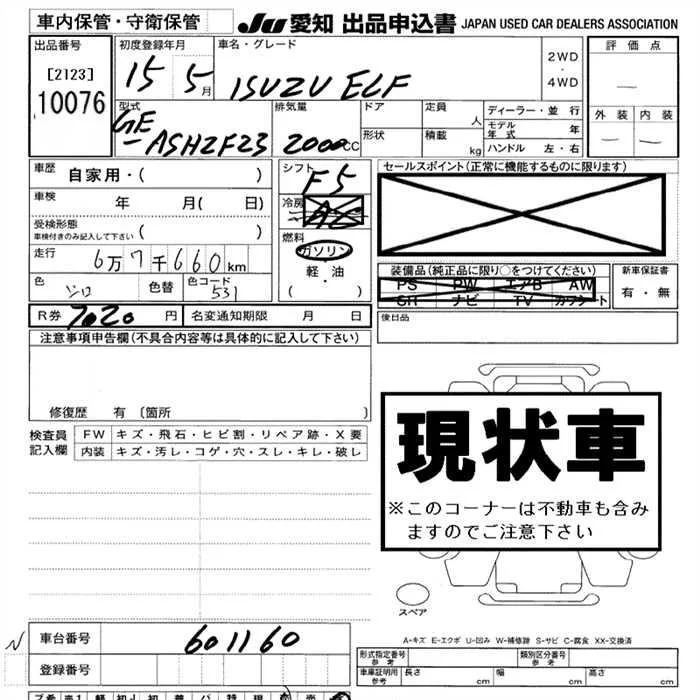 車内保管・守衛保管 JU 愛知 出品申込書 JAPAN USED CAR DEALERS ASSOCIATION
出品番号 初度登録年月 車名・グレード 評価点
[2123] 10076 15 5月 ISUZU ELF 2WD・4WD —
型式 排気量 ドア 定員 人 ディーラー・並行 外装 内装
GE-ASH2F23 2000CC 形状 積載 kg モデル年式 年 — —
ハンドル 左・右
車歴 自家用・( ) シフト F5 セールスポイント(正常に機能するものに限ります)
車検 年 月( 日) 冷房 AC
受検形態 車検付きのみ記入して下さい ( ) 燃料
走行 6万7千660km ガソリン 軽・油 ・( ) 装備品(純正品に限り○をつけてください) 新車保証書
色 シロ 色替 色コード 531 PS PW エアB AW 有・無
SR ナビ TV カワシート
R券 7020円 名変通知期限 月 日 後日品
注意事項申告欄(不具合内容等は具体的に記入して下さい)
修復歴 有 〔箇所 〕
検査員記入欄 FW キズ・飛石・ヒビ割・リペア跡・X要
内装 キズ・汚レ・コゲ・穴・スレ・キレ・破レ
現状車
※このコーナーは不動車も含み
ますのでご注意下さい
スペア
A-キズ E-エクボ U-凹み W-補修跡 S-サビ C-腐食 XX-交換済
N 車台番号 601160
登録番号
形式指定番号 参考 類別区分番号 参考
車庫証明用 参考 長さ cm 幅 cm 高さ cm